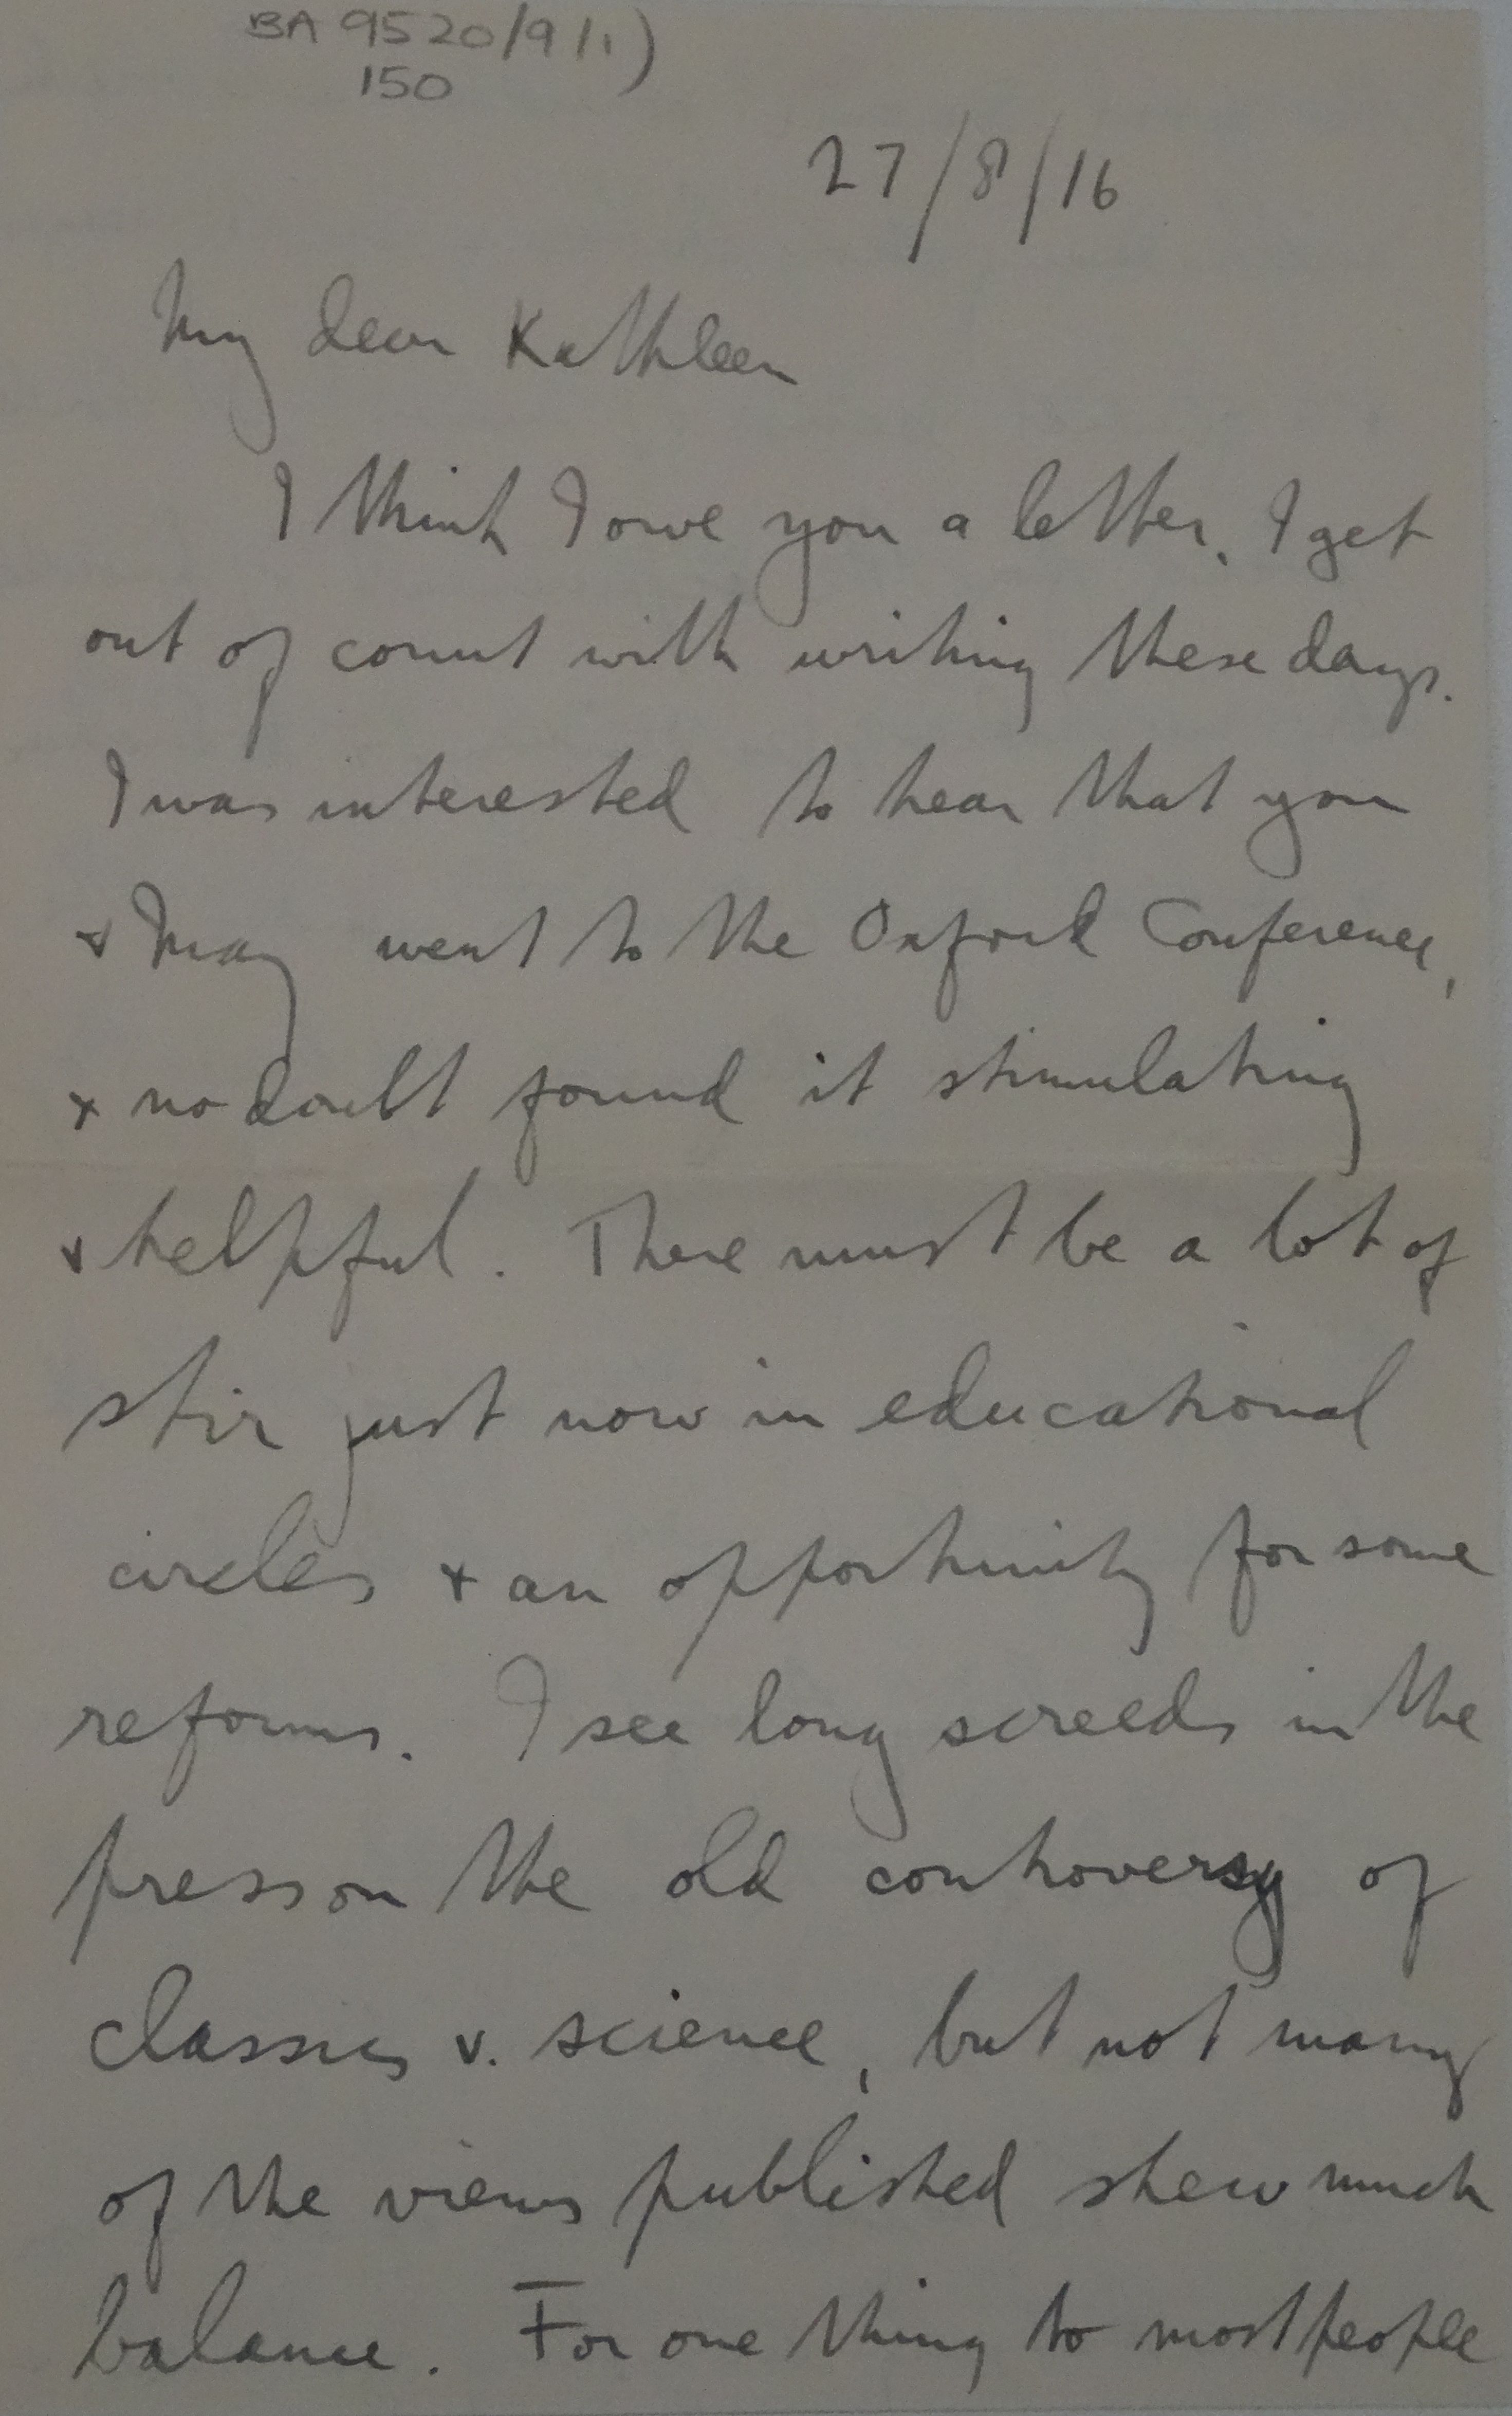 BA 9520/9/1)
150
27/8/16
My dear Kathleen
I think I owe you a letter. I get
out of count with writing these days.
I was interested to hear that you
& May went to the Oxford Conference,
& no doubt found it stimulating
& helpful. There must be a lot of
stir just now in educational
circles & an opportunity for some
reforms. I see long screeds in the
press on the old controversy of
classics v. science, but not many
of the views published shew much
balance. For one thing to most people